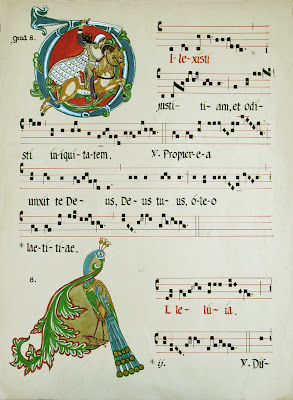 grad 8.
I- le- xisti
justi- ti- am, et odi-
sti iniquitatem. V. Propter e-a
unxit te De- us, De-us tu-us, o-le-o
* lae-ti-ti-ae.
8.
L le- lú- ia.
* ij. V. Dif-